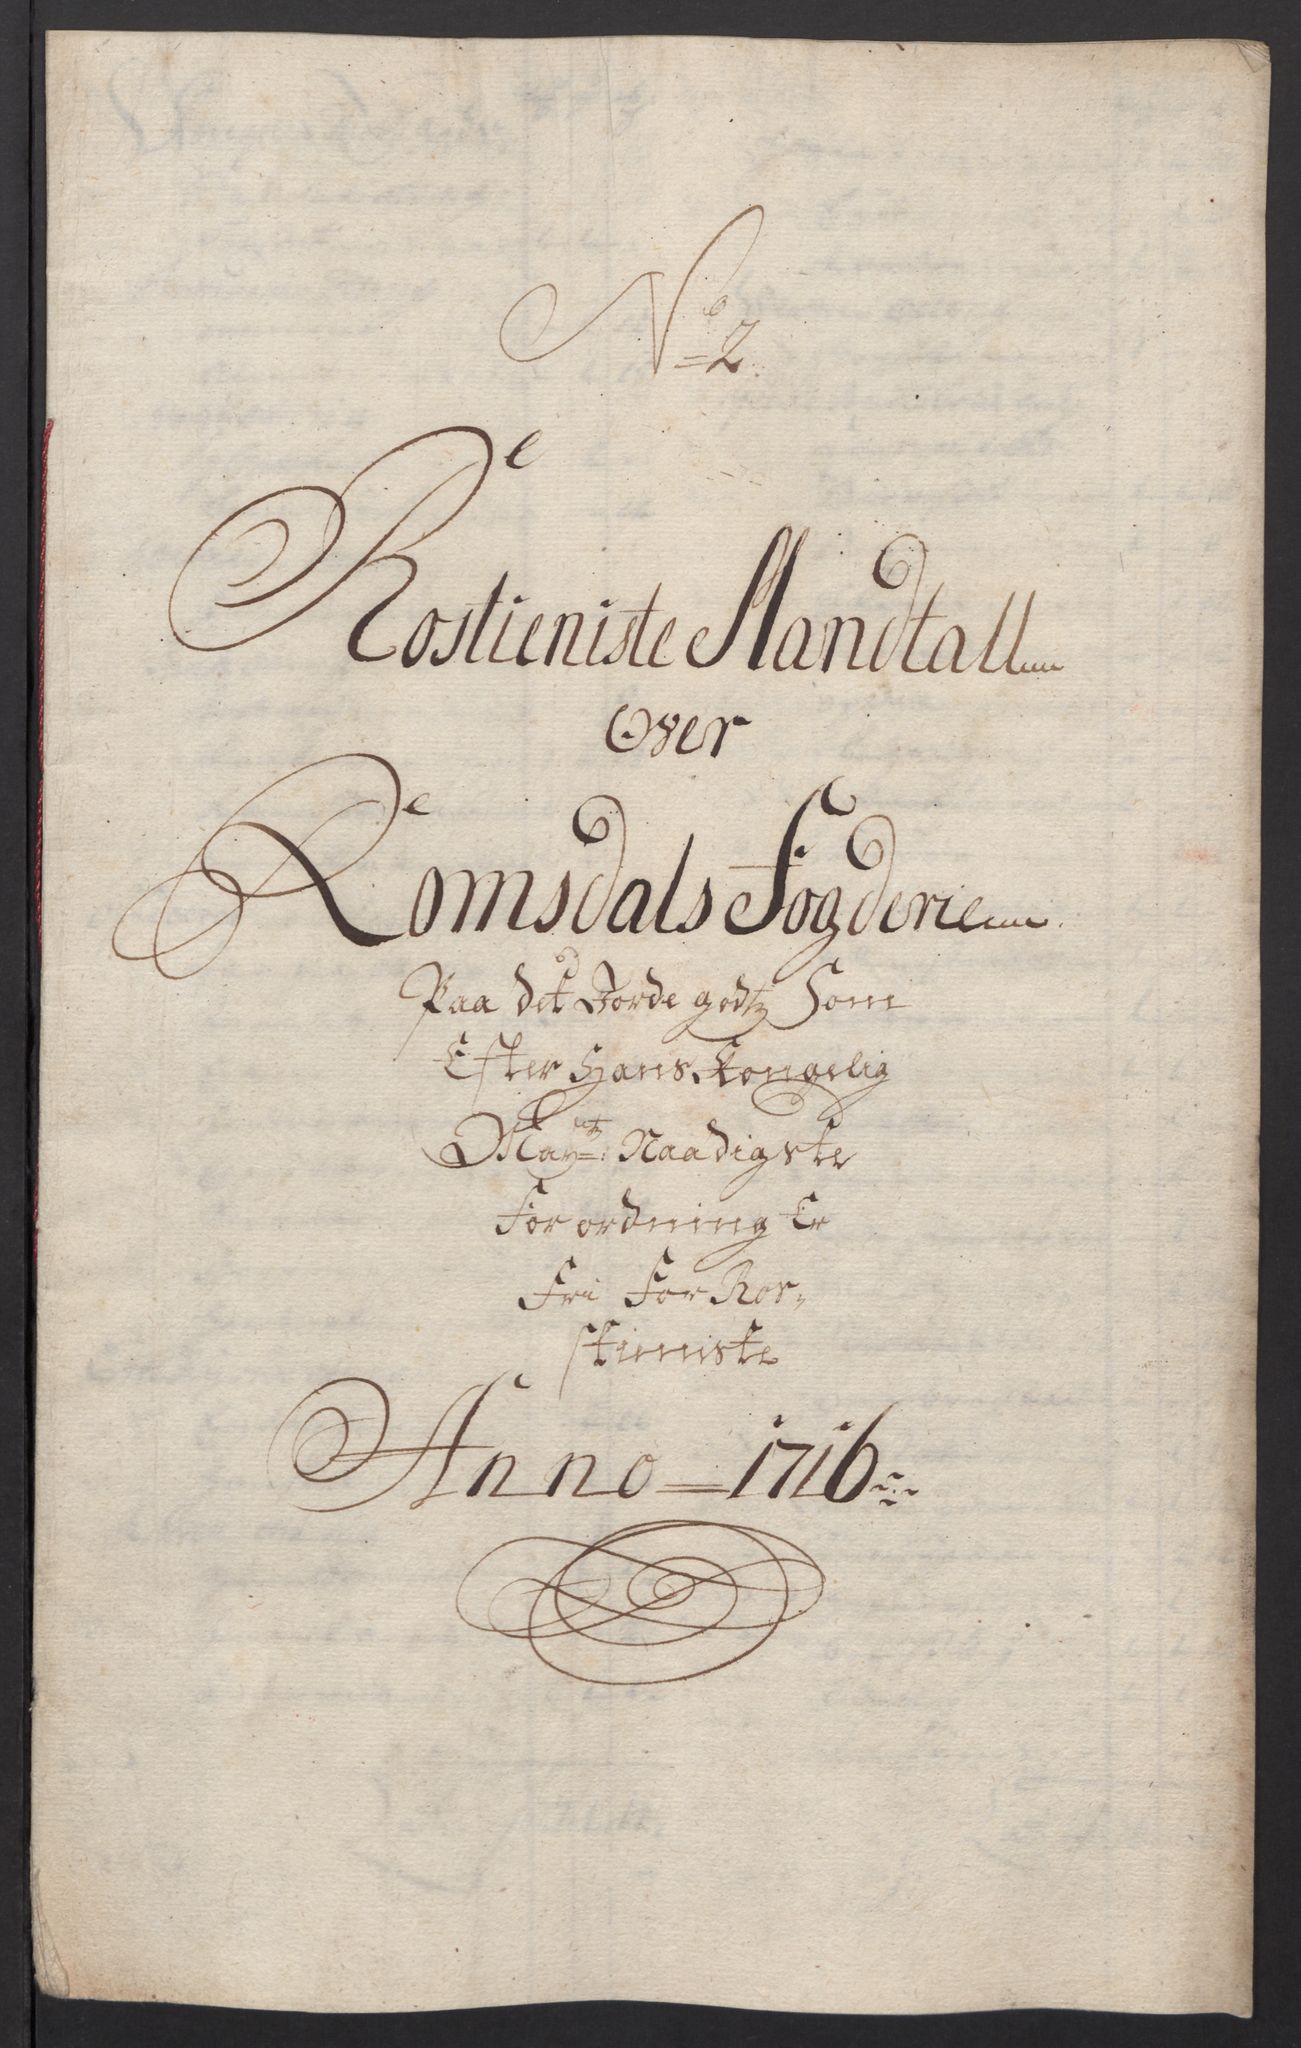 No 2
Rostieniste Mandtall
Over
Romsdals Fogderie
Paa det Jorde godtz Som
Efter Hans Kongelig
Maytz: Naadigste
Forordning Er
Fri For Ros,
stieniste
Anno = 1716